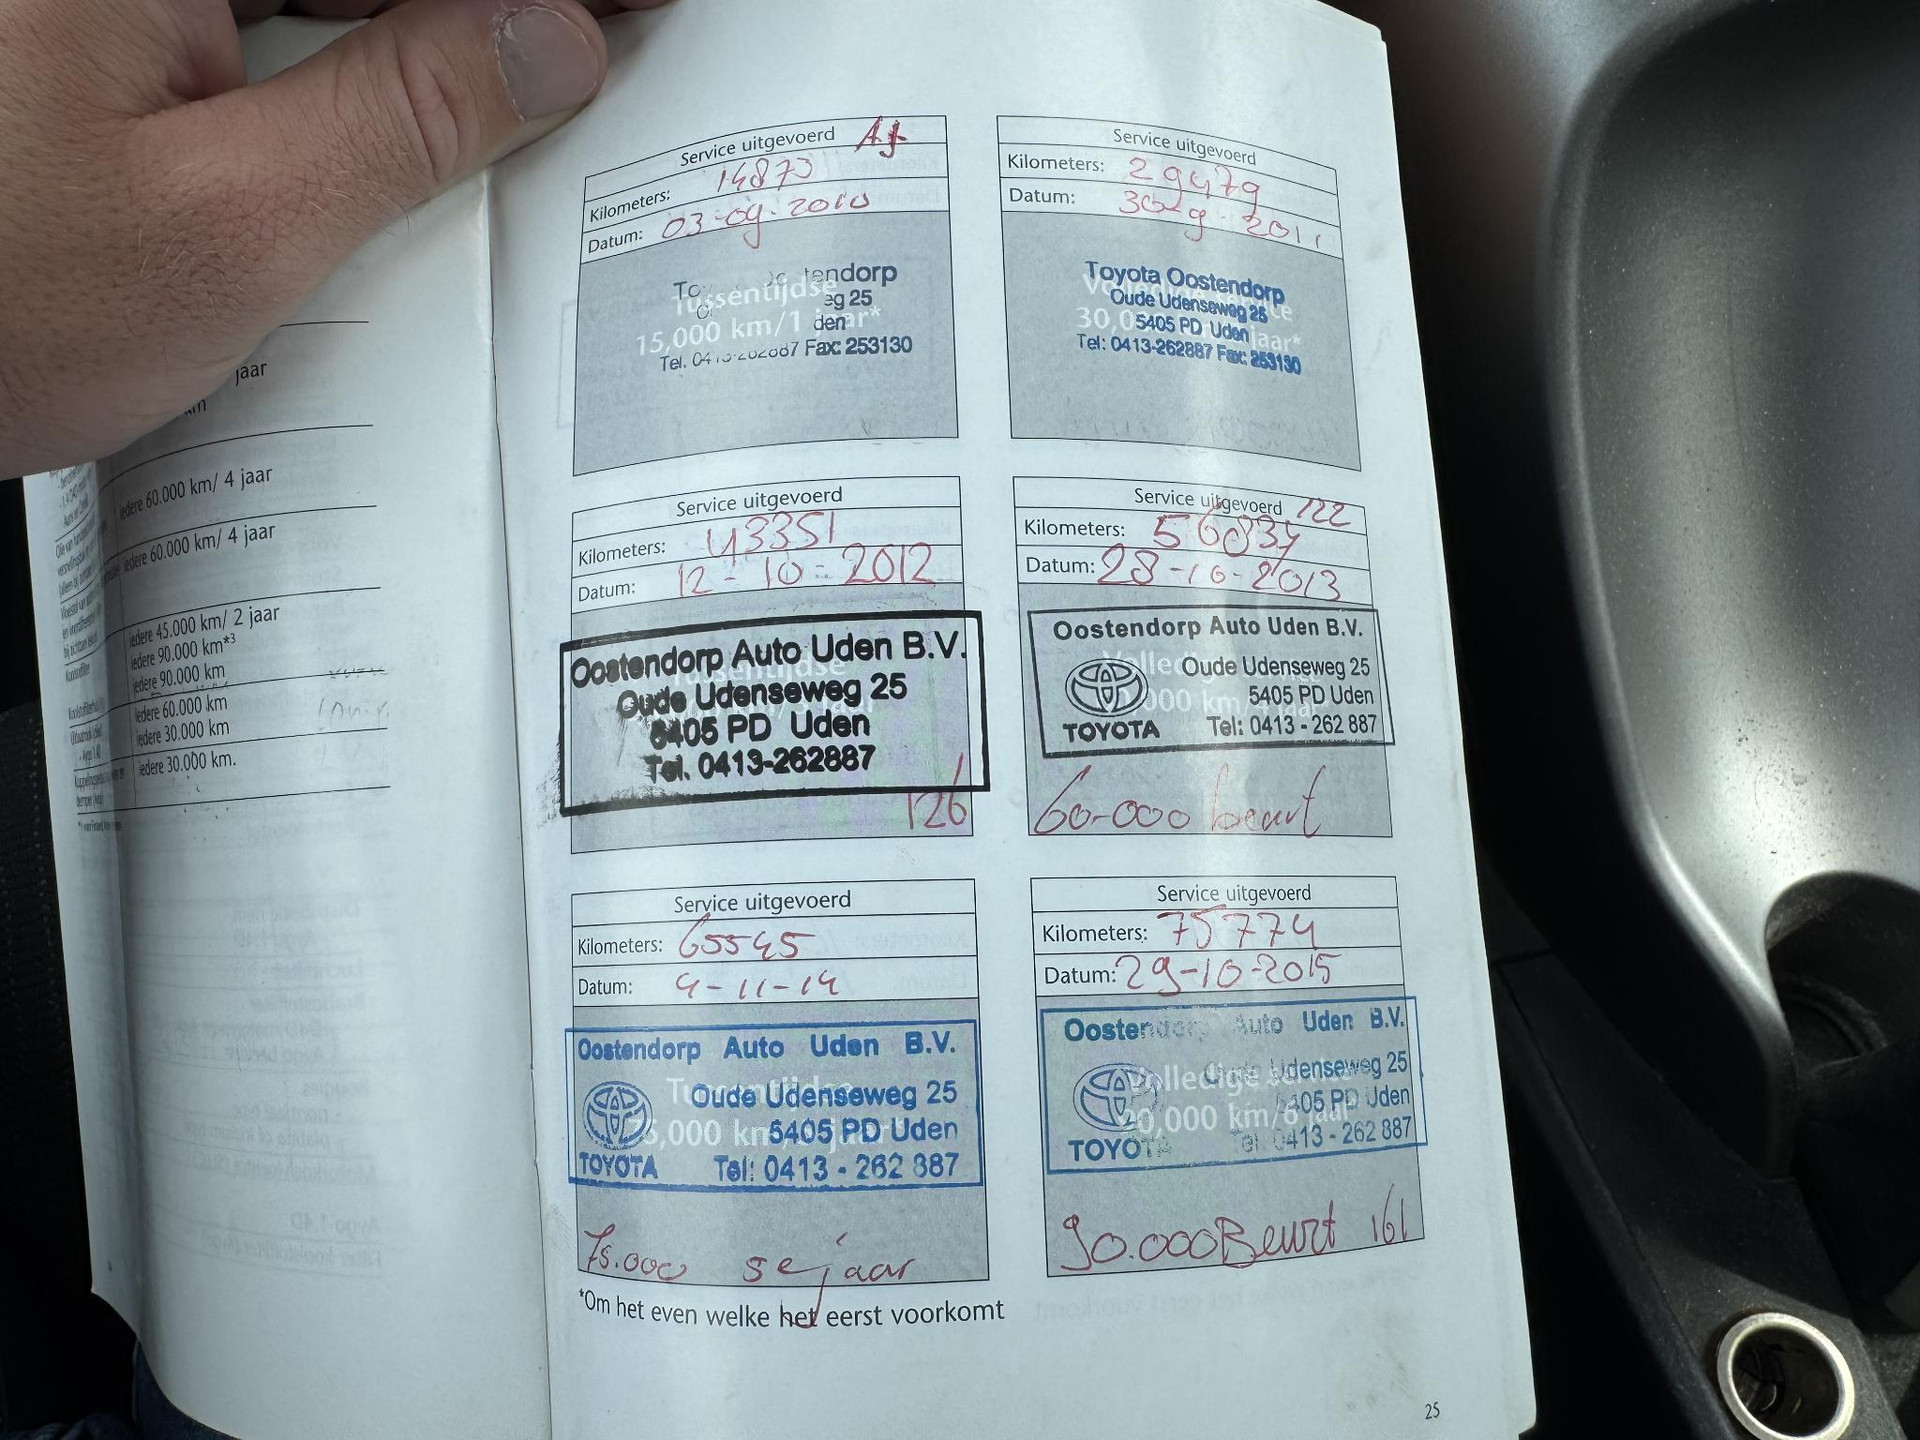 jaar
km
iedere 60.000 km/ 4 jaar
iedere 60.000 km/ 4 jaar
iedere 45.000 km/ 2 jaar
iedere 90.000 km*3
iedere 90.000 km
iedere 60.000 km
iedere 30.000 km
iedere 30.000 km.
Service uitgevoerd
Kilometers: 14873
Datum: 03-09-2010
Tussentijdse
15,000 km/1 jaar*
tendorp
eg 25
den
Tel. Fax: 253130
Service uitgevoerd
Kilometers: 29479
Datum: 30-9-2011
Toyota Oostendorp
Oude Udenseweg 25
5405 PD Uden
Tel: 0413-262887 Fax: 253130
jaar*
Service uitgevoerd
Kilometers: 43351
Datum: 12-10-2012
Oostendorp Auto Uden B.V.
Oude Udenseweg 25
5405 PD Uden
Tel. 0413-262887
126
Service uitgevoerd 122
Kilometers: 56034
Datum: 28-10-2013
Oostendorp Auto Uden B.V.
Oude Udenseweg 25
5405 PD Uden
TOYOTA Tel: 0413 - 262 887
60-000 beurt
Service uitgevoerd
Kilometers: 65545
Datum: 4-11-14
Oostendorp Auto Uden B.V.
Oude Udenseweg 25
5405 PD Uden
TOYOTA Tel: 0413 - 262 887
75.000 5e jaar
Service uitgevoerd
Kilometers: 75774
Datum: 29-10-2015
Oostendorp Auto Uden B.V.
Oude Udenseweg 25
5405 PD Uden
TOYOTA Tel: 0413 - 262 887
Volledige service
90,000 km/6 jaar*
90.000 Beurt 161
*Om het even welke het eerst voorkomt
25